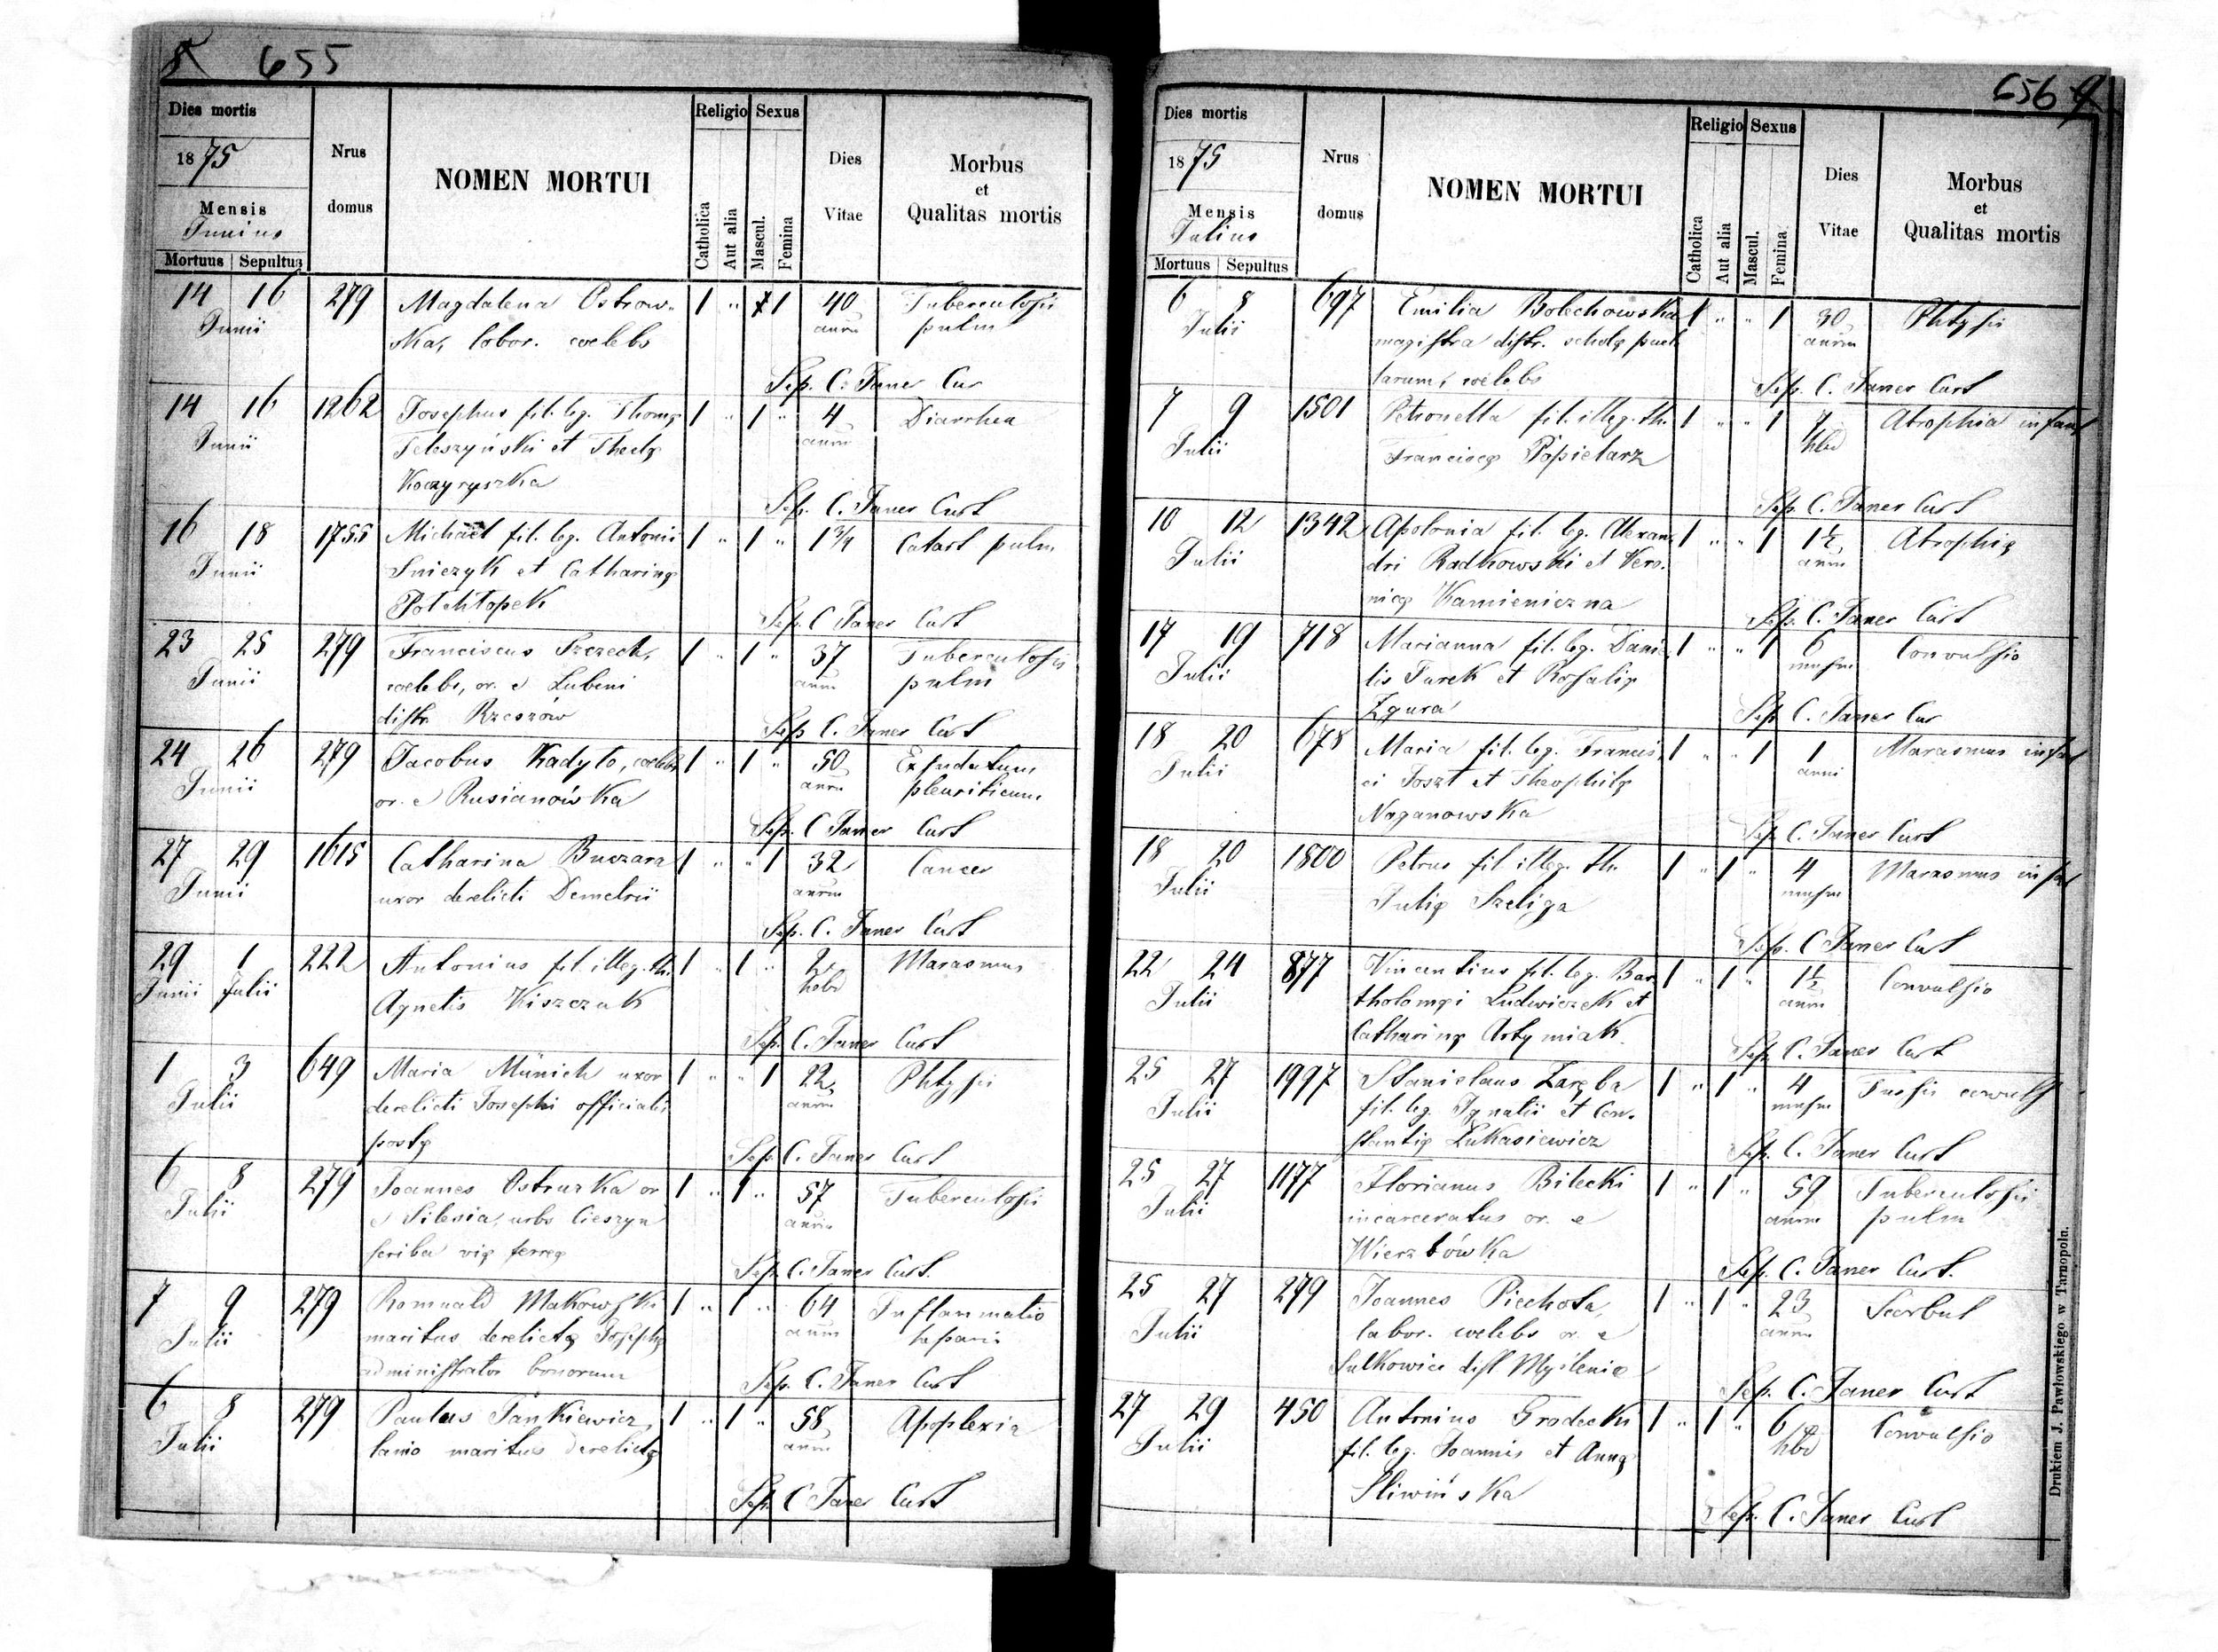 655
Dies mortis
1875
Mensis
Junius
Mortuus Sepultus
Nrus domus
NOMEN MORTUI
Religio
Catholica
Aut alia
Sexus
Mascul.
Femina
Dies Vitae
Morbus
et
Qualitas mortis
14 16 279 Magdalena Ostrow- 1 " 1 40 Tuberculosis
Junii ska, labor. coelebs annor pulm
Sep. C. Janer Cur
14 16 1262 Josephus fil. leg. Thomę 1 " 1 " 4 Diarrhea
Junii Teleszyński et Theclę annor
Koczyryszka
Sep. C. Janer Curt
16 18 1755 Michael fil. leg. Antonii 1 " 1 " 1 3/4 Catarh pulm
Junii Sniezyk et Catharinę
Potchłopek
Sep. C Janer Curt
23 25 279 Franciscus Szczech, 1 " 1 " 37 Tuberculosis
Junii coelebs, or. e Lubeni annor pulm
distr. Rzeszów
Sep. C. Janer Curt
24 26 279 Jacobus Kadyło, coelebs 1 " 1 " 50 Exsudatum
Junii or. e Rusianówka annor pleuriticum
Sep. C Janer Curt
27 29 1615 Catharina Buczarz 1 " " 1 32 Cancer
Junii uxor derelicti Demetrii annor
Sep. C. Janer Curt
29 1 222 Antonius fil. illeg. th. 1 " 1 " 2 Marasmus
Junii Julii Agnetis Kiszczak hebd
Sep. C. Janer Curt
1 3 649 Maria Münich uxor 1 " " 1 22 Phtysis
Julii derelicti Josephi officialis annor
postę
Sep. C. Janer Curt
6 8 279 Joannes Ostruzka or 1 " 1 " 57 Tuberculosis
Julii e Silesia, urbs Cieszyn annor
scriba vię ferreę
Sep. C. Janer Curt.
7 9 279 Romuald Makowski 1 " 1 " 64 Inflammatio
Julii maritus derelictę Josephę annor hepatis
administrator bonorum
Sep. C. Janer Curt
6 8 279 Paulus Jankiewicz, 1 " 1 " 58 Apoplexia
Julii lanio maritus derelictę annor
Sep. C Janer Curt
656
Dies mortis
1875
Mensis
Julius
Mortuus Sepultus
Nrus domus
NOMEN MORTUI
Religio
Catholica
Aut alia
Sexus
Mascul.
Femina
Dies Vitae
Morbus
et
Qualitas mortis
6 8 697 Emilia Bolechowska 1 " " 1 30 Phtysis
Julii magistra distr. scholę puel annor
larum, coelebs
Sep. C. Janer Curt
7 9 1501 Petronella fil. illeg. th. 1 " " 1 7 Atrophia infant
Julii Franciscę Popielarz hbd
Sep. C. Janer Curt
10 12 1342 Apolonia fil. leg. Alexan 1 " " 1 1½ Atrophia
Julii dri Radkowski et Vero- anni
nicę Kamieniezna
Sep. C. Janer Curt
17 19 718 Marianna fil. leg. Danie 1 " " 1 6 Convulsio
Julii lis Turek et Rosalię mensium
Zgura
Sep C. Janer Cur
18 20 678 Maria fil. leg. Francis 1 " " 1 1 Marasmus infan
Julii ci Joszt et Theophilę anni
Naganowska
Sep C. Janer Curt
18 20 1800 Petrus fil illeg. th. 1 " 1 " 4 Marasmus infan
Julii Julię Szeliga mensium
Sep. C Janer Curt
22 24 877 Vincentius fil. leg. Bar 1 " 1 " 1½ Convulsio
Julii tholomęi Ludwiczek et anni
Catharinę Artymiak
Sep. C. Janer Curt
25 27 1997 Stanislaus Zaręba 1 " 1 " 4 Tussis convuls
Julii fil. leg. Ignatii et Con- mensium
stantię Łukasiewicz
Sep. C. Janer Curt
25 27 1177 Florianus Bilecki 1 " 1 " 59 Tuberculosis
Julii incarceratus or. e annor pulm
Wierzbówka
Sep. C. Janer Curt.
25 27 279 Joannes Piechota, 1 " 1 " 23 Scorbut
Julii labor. coelebs or. e annor
Sulkowice dist Myślenice
Sep. C. Janer Curt
27 29 450 Antonius Grodecki 1 " 1 " 6 Convulsio
Julii fil. leg. Joannis et Annę hbd
Sliwińska
Sep. C. Janer Curt
Drukiem J. Pawłowskiego w Tarnopolu.